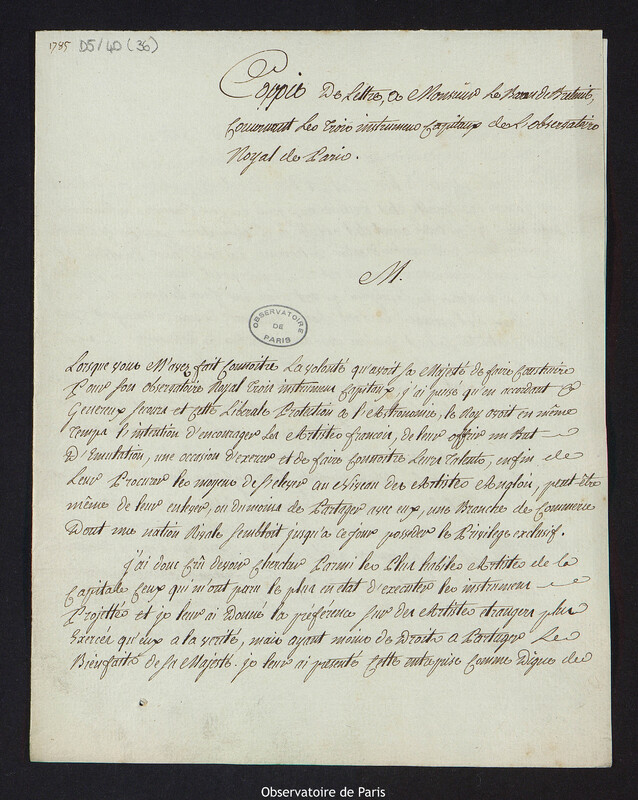 1785 D5/40 (36)
Coppie De Lettre, a Monsieur Le Baron de Breteuil,
Concernant Les Trois instrumens Capitaux de L'observatoire
Royal de Paris.
M.
OBSERVATOIRE
DE
PARIS
Lorsque vous M'avez fait Connoitre La volonté qu'avoit sa Majesté de faire Construire
Pour son observatoire Royal Trois instrumens Capitaux, j'ai pensé qu'en accordant Ce
Genereux secours et cette Liberale Protection a l'Astronomie, le Roy avoit en même
Temps l'intention d'encourager Les Artistes francois, de leur offrir un But
D'Emulation, une occasion d'exercer et de faire Connoitre Leurs Talents, enfin de
Leur Procurer les moyens de s'elever au Niveau des Artistes Anglois, peut être
même de leur enlever, ou du moins de Partager avec eux, une Branche de Commerce
Dont une nation Rivale sembloit jusqu'a ce jour posseder le Privilege exclusif.
j'ai donc Crû devoir Chercher Parmi les Plus habiles Artistes de la
Capitale Ceux qui m'ont paru le plus en etat d'executer les instrumens
Projettés et je leur ai Donné la préférence sur des Artistes etrangers plus
Exercés qu'eux a la verité, mais ayant moins de Droits a Partager Les
Bienfaits de sa Majesté. je leur ai presenté Cette entreprise Comme Digne de
Observatoire de Paris